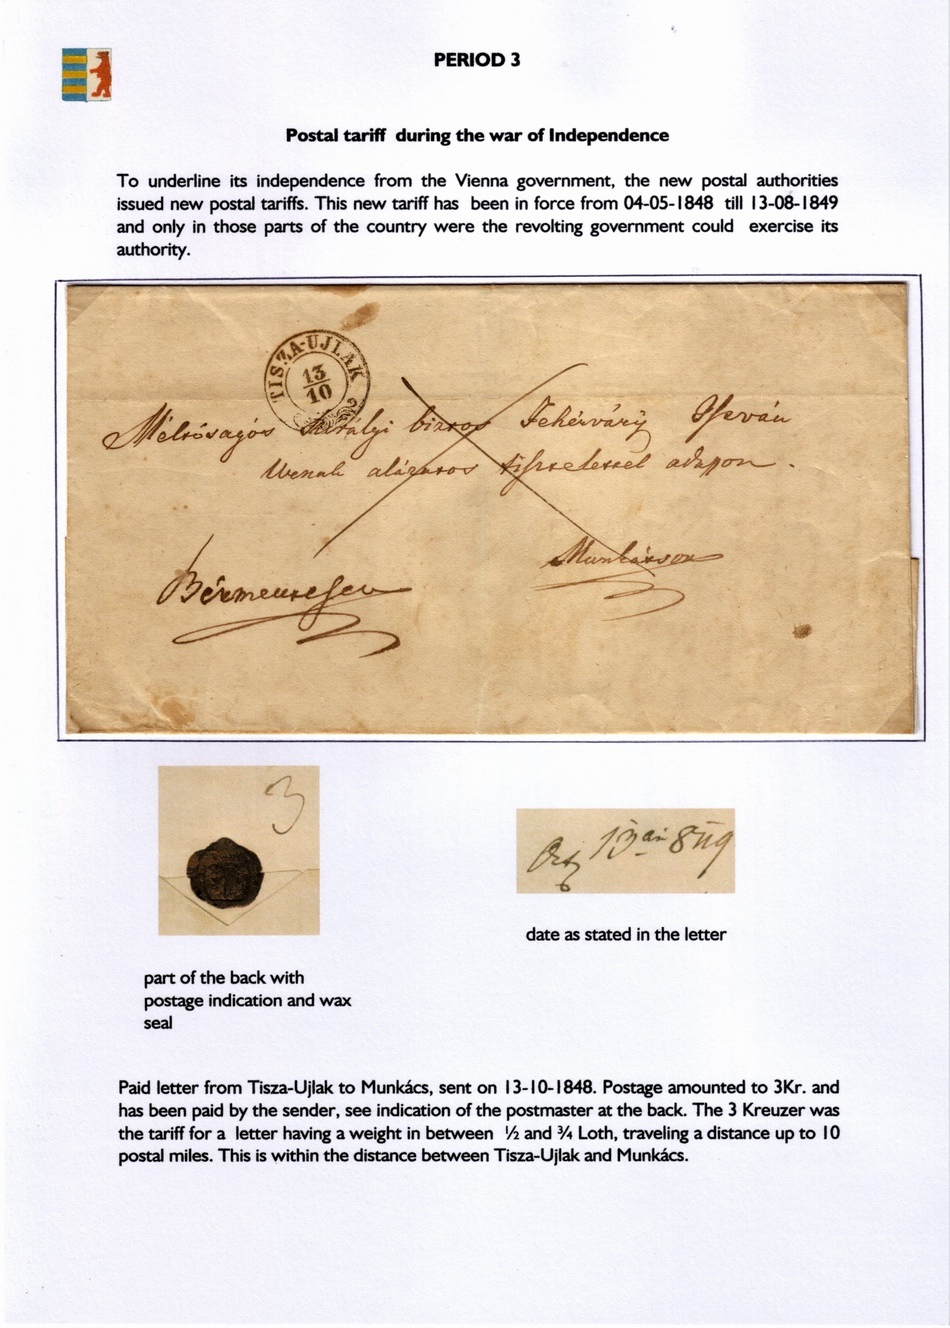 PERIOD 3
Postal tariff during the war of Independence
To underline its independence from the Vienna government, the new postal authorities
issued new postal tariffs. This new tariff has been in force from 04-05-1848 till 13-08-1849
and only in those parts of the country were the revolting government could exercise its
authority.
TISZA-UJLAK
13
10
Méltóságos Királyi biztos Fehérváry István
Urnak alázatos tisztelettel adasson.
Bérmentesen
Munkácson
3
13 849
date as stated in the letter
part of the back with
postage indication and wax
seal
Paid letter from Tisza-Ujlak to Munkács, sent on 13-10-1848. Postage amounted to 3Kr. and
has been paid by the sender, see indication of the postmaster at the back. The 3 Kreuzer was
the tariff for a letter having a weight in between ½ and ¾ Loth, traveling a distance up to 10
postal miles. This is within the distance between Tisza-Ujlak and Munkács.